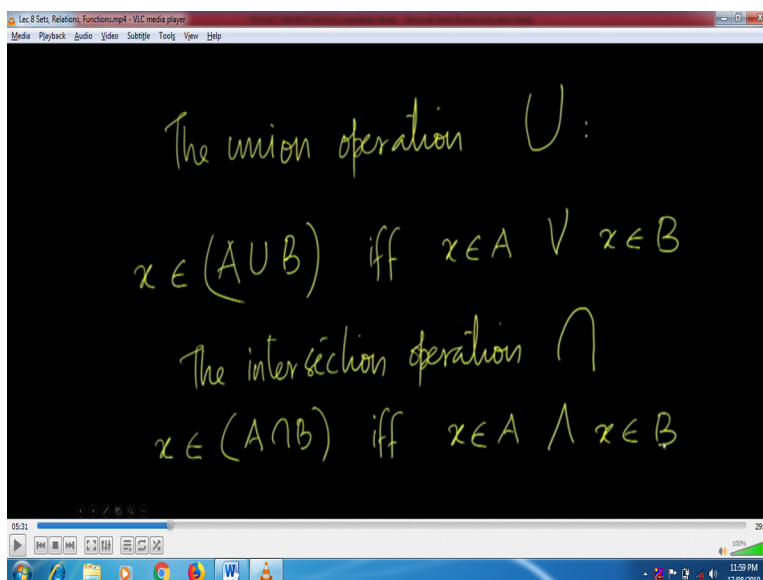 Lec 8 Sets, Relations, Functions.mp4 - VLC media player
Media Playback Audio Video Subtitle Tools View Help
The union operation ∪ :
x ∈ (A ∪ B) iff x ∈ A ∨ x ∈ B
The intersection operation ∩
x ∈ (A ∩ B) iff x ∈ A ∧ x ∈ B
05:31 29:
100%
11:59 PM